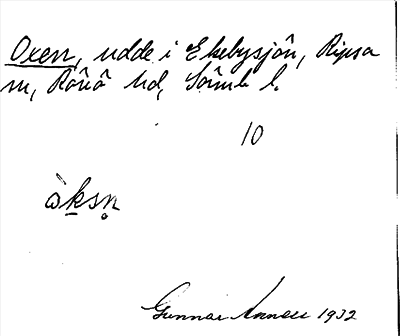 Oxen, udde i Ekebysjön, Ripsa
sn, Rönö hd, Sörml l.
10
òksn̥
Gunnar 1932